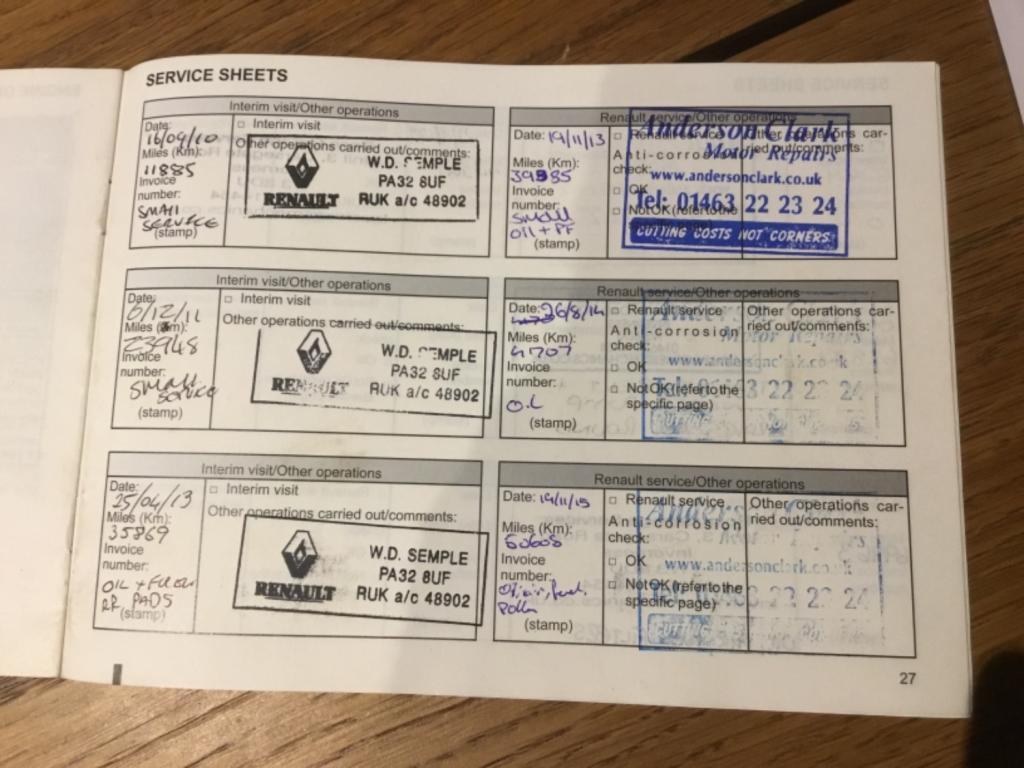 SERVICE SHEETS
Interim visit/Other operations
Date: 16/09/10
Miles (Km): 11885
Invoice number:
SMALL SERVICE
(stamp)
□ Interim visit
Other operations carried out/comments:
RENAULT
W.D. SEMPLE
PA32 8UF
RUK a/c 48902
Interim visit/Other operations
Date: 6/12/11
Miles (Km): 23948
Invoice number:
Small Service
(stamp)
□ Interim visit
Other operations carried out/comments:
RENAULT
W.D. SEMPLE
PA32 8UF
RUK a/c 48902
Interim visit/Other operations
Date: 25/04/13
Miles (Km): 35869
Invoice number:
OIL + FILTER
RF PADS
(stamp)
□ Interim visit
Other operations carried out/comments:
RENAULT
W.D. SEMPLE
PA32 8UF
RUK a/c 48902
Renault service/Other operations
Date: 19/11/13
Miles (Km): 39985
Invoice number:
Small
Oil + PF
(stamp)
□ Renault service
Anti-corrosion check:
□ OK
□ Not OK (refer to the
Other operations carried out/comments:
Anderson Clark
Motor Repairs
www.andersonclark.co.uk
Tel: 01463 22 23 24
CUTTING COSTS NOT CORNERS
Renault service/Other operations
Date: 26/8/14
Miles (Km): 47707
Invoice number:
Oil
(stamp)
□ Renault service
Anti-corrosion check:
□ OK
□ Not OK (refer to the specific page)
Other operations carried out/comments:
Motor Repairs
www.andersonclark.co.uk
22 23 24
CUTTING
Renault service/Other operations
Date: 19/11/15
Miles (Km): 60608
Invoice number:
Oil, air, fuel,
Pollen
(stamp)
□ Renault service
Anti-corrosion check:
□ OK
□ Not OK (refer to the specific page)
Other operations carried out/comments:
www.andersonclark.co.uk
22 23 24
CUTTING
27